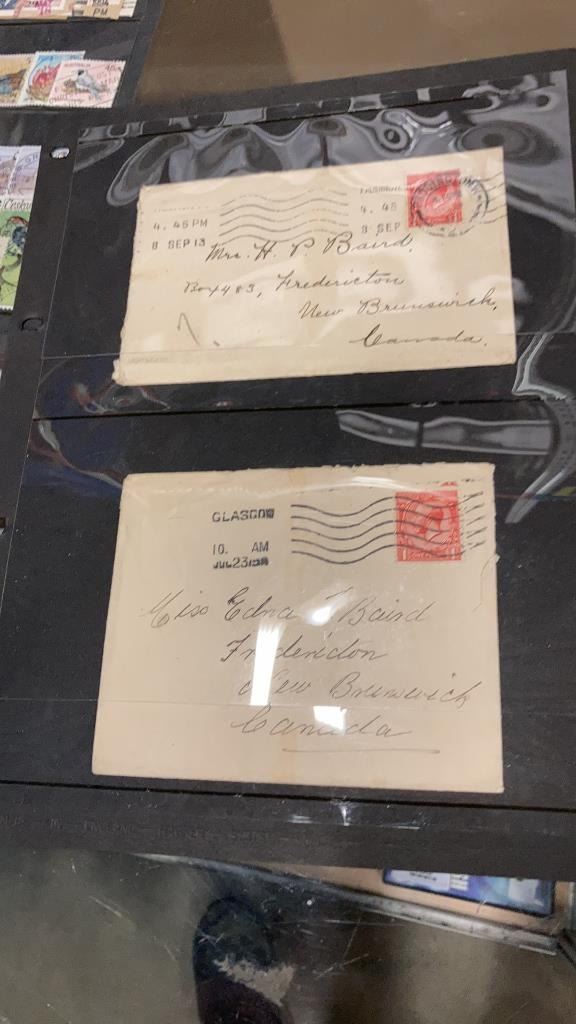 PM
AUSTRALIA
4. 45 PM
8 SEP 13
4. 45
8 SEP
Mrs. H. P. Baird,
Box 483, Fredericton
New Brunswick,
Canada.
GLASGOW
10. AM
JUL 23
Miss Edna Baird
Fredericton
New Brunswick
Canada